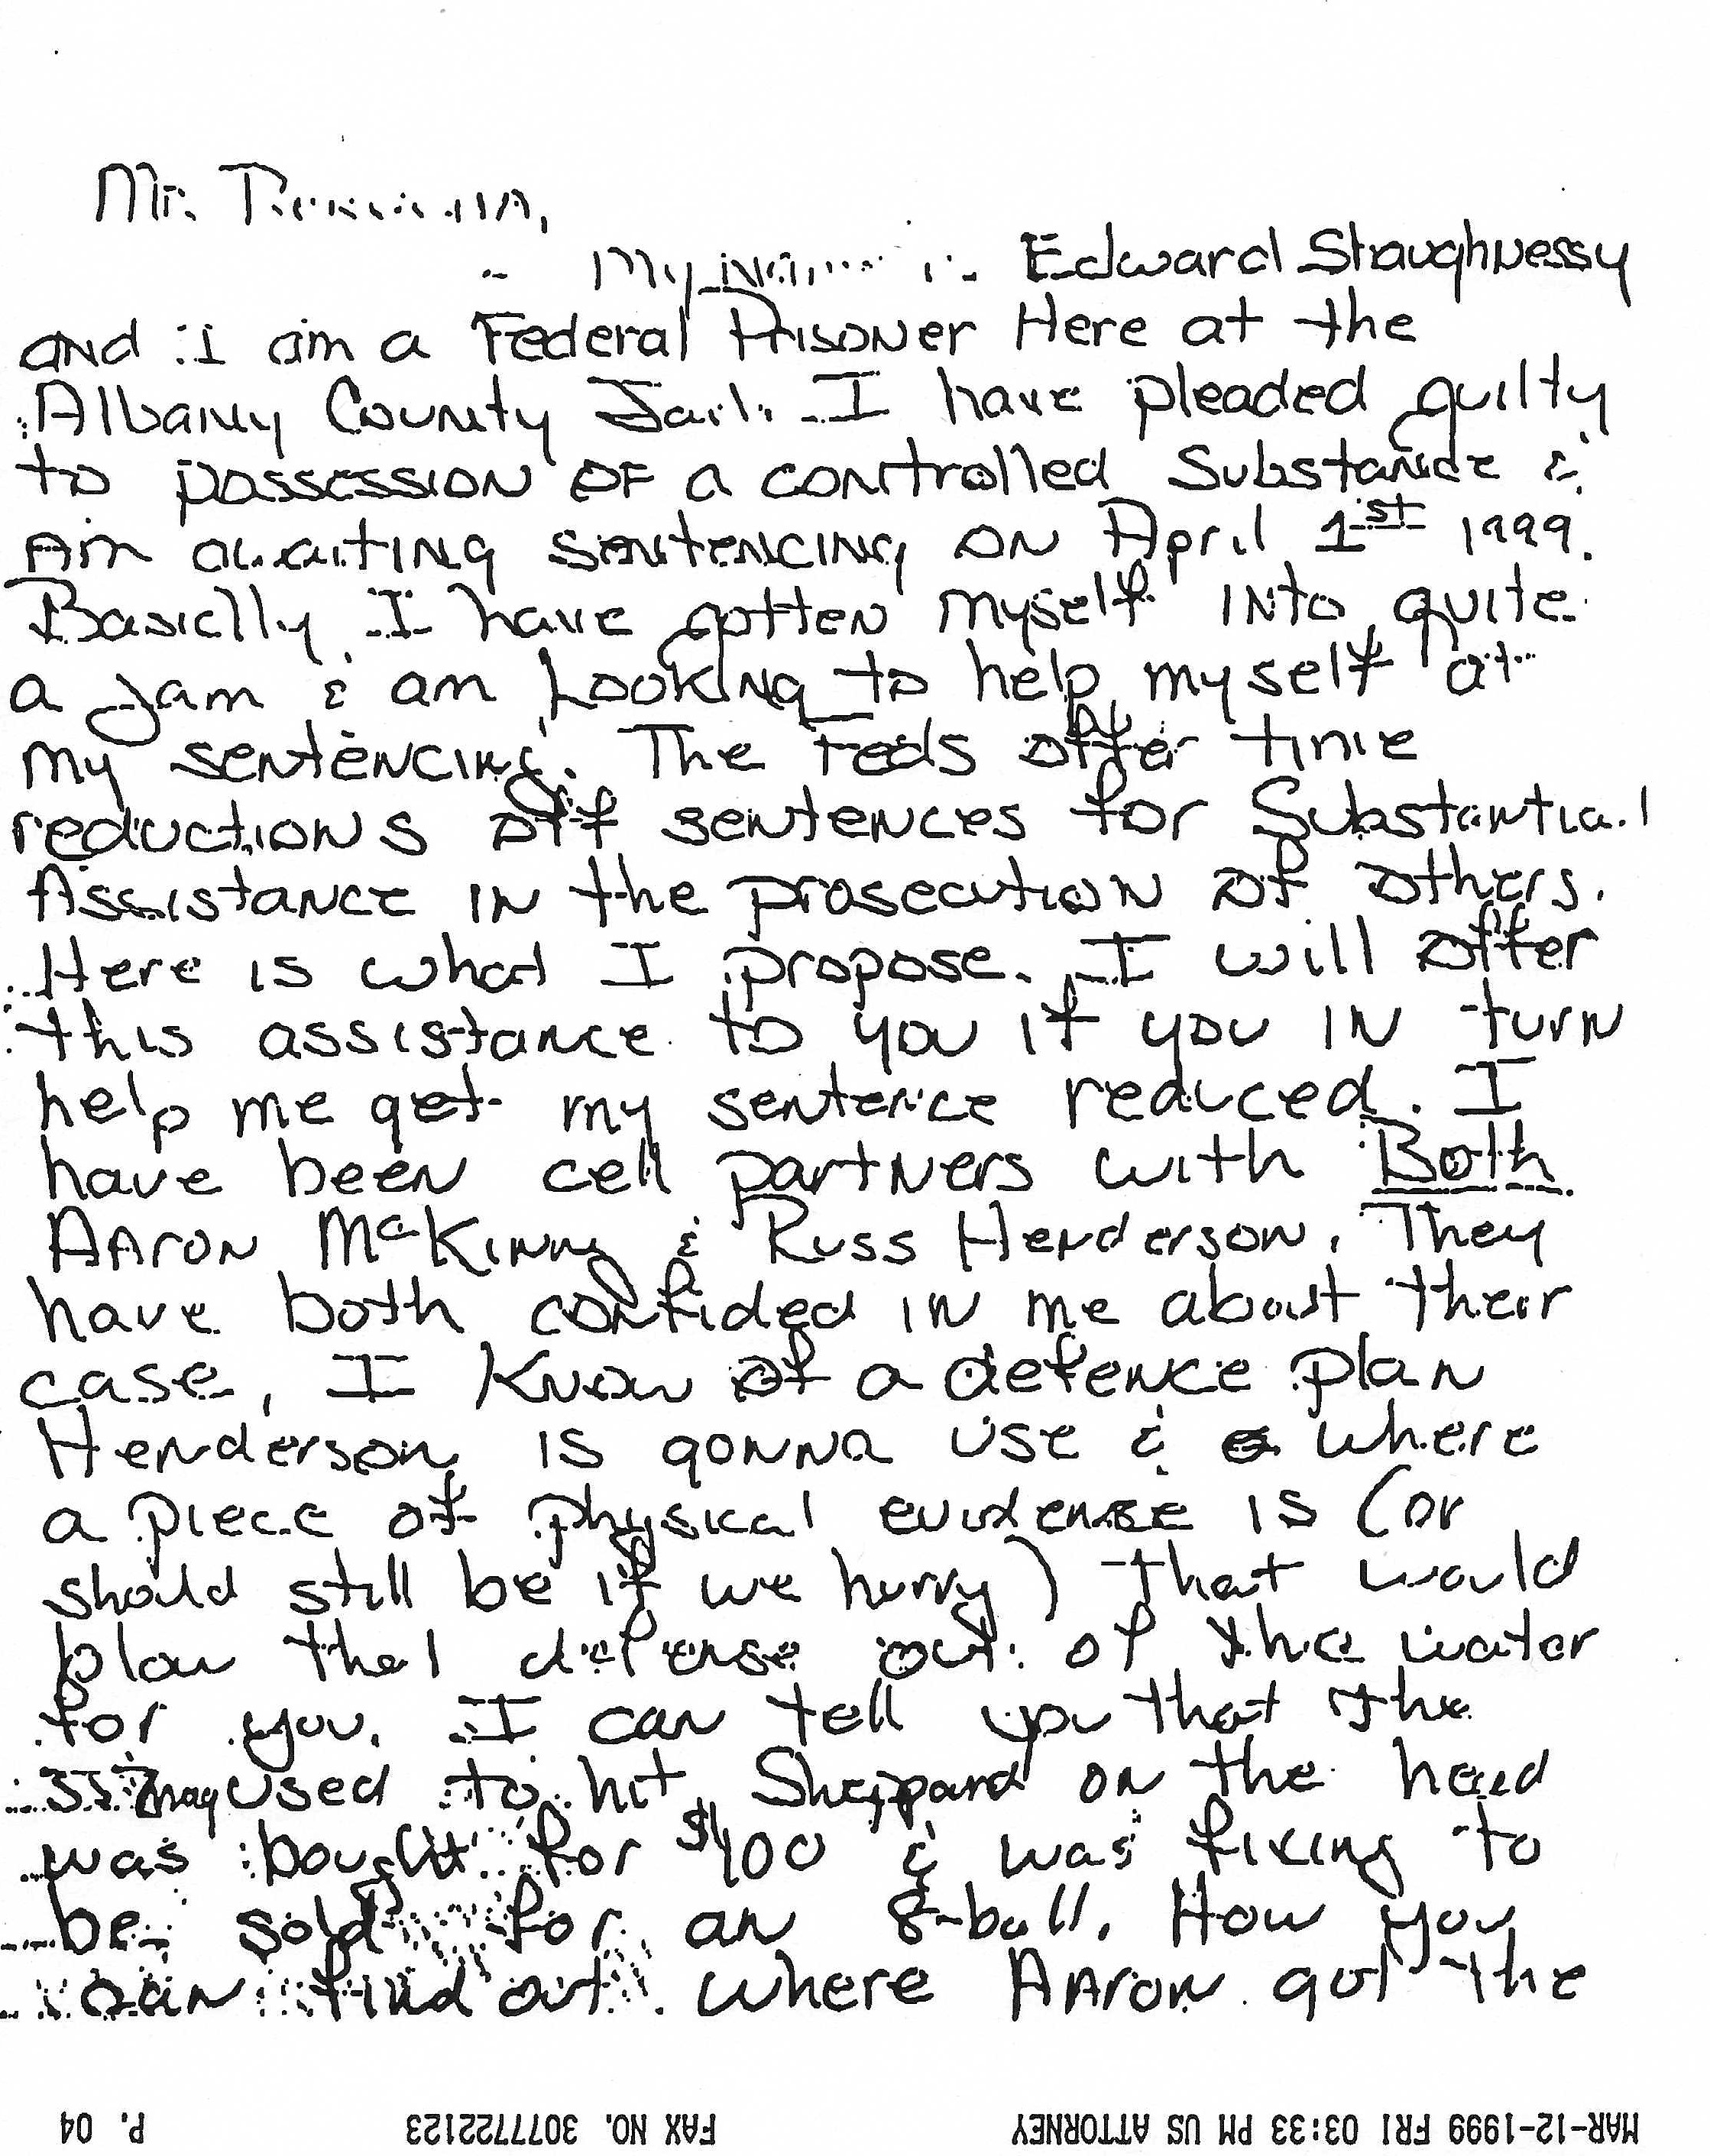 Mr.
My Edward Shaughnessy
and I am a Federal Prisoner Here at the
Albany County Jail. I have pleaded guilty
to possession of a controlled Substance &
Am awaiting sentencing on April 1st 1999.
Basiclly I have gotten myself into quite
a jam & am Looking to help myself at
my sentencing. The Feds offer time
reductions off sentences for Substantial
Assistance in the prosecution of others.
Here is what I propose. I will offer
this assistance to you if you in turn
help me get my sentence reduced. I
have been cell partners with Both
Aaron McKinny & Russ Henderson. They
have both confided in me about their
case, I know of a defence plan
Henderson is gonna use & where
a piece of physical evidence is (or
should still be if we hurry) that would
blow the defense out of the water
for you. I can tell you that the
mag used to hit Sheppard on the head
was bought for $400 & was fixing to
be sold for an 8-ball. How you
can find out where Aaron got the
MAR-12-1999 FRI 03:33 PM US ATTORNEY FAX NO. 3077722123 P. 04